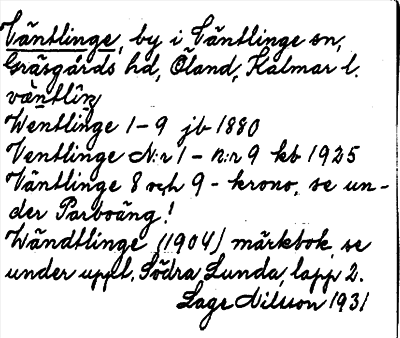 Väntlinge, by i Väntlinge sn,
Gräsgårds hd, Öland, Kalmar l.
Wentlinge 1-9 jb 1880
Ventlinge N:r 1 - n:r 9 kb 1925
Väntlinge 8 och 9 - krono, se un-
der Parboäng!
Wändtlinge (1904) märkbok, se
under uppl. Södra Lunda, lapp 2.
Lage Nilsson 1931